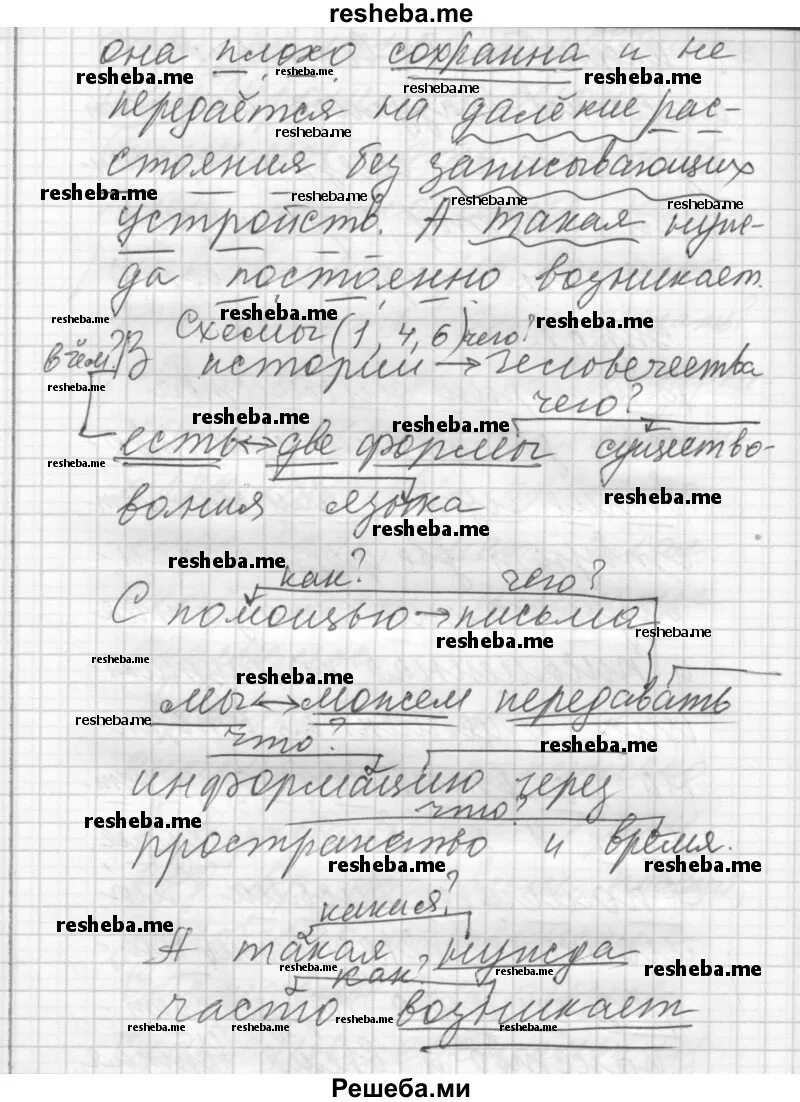 resheba.me
она плохо сохранна и не
resheba.me resheba.me resheba.me resheba.me
передаётся на далёкие рас-
resheba.me
стояния без записывающих
resheba.me resheba.me resheba.me resheba.me
устройств. А такая нуж-
да постоянно возникает.
resheba.me resheba.me resheba.me
Схемы (1, 4, 6) чего?
в чём? В истории → человечества
resheba.me
чего?
resheba.me resheba.me
есть ↔ две формы существо-
resheba.me resheba.me
вания языка
resheba.me
resheba.me
как? чего?
С помощью → письма
resheba.me resheba.me
resheba.me
resheba.me
мы ↔ можем передавать
resheba.me
что? resheba.me
информацию через
resheba.me что?
пространство и время.
resheba.me resheba.me
какая?
resheba.me
А такая нужда
resheba.me как? resheba.me resheba.me
часто возникает
resheba.me resheba.me resheba.me resheba.me
Решеба.ми